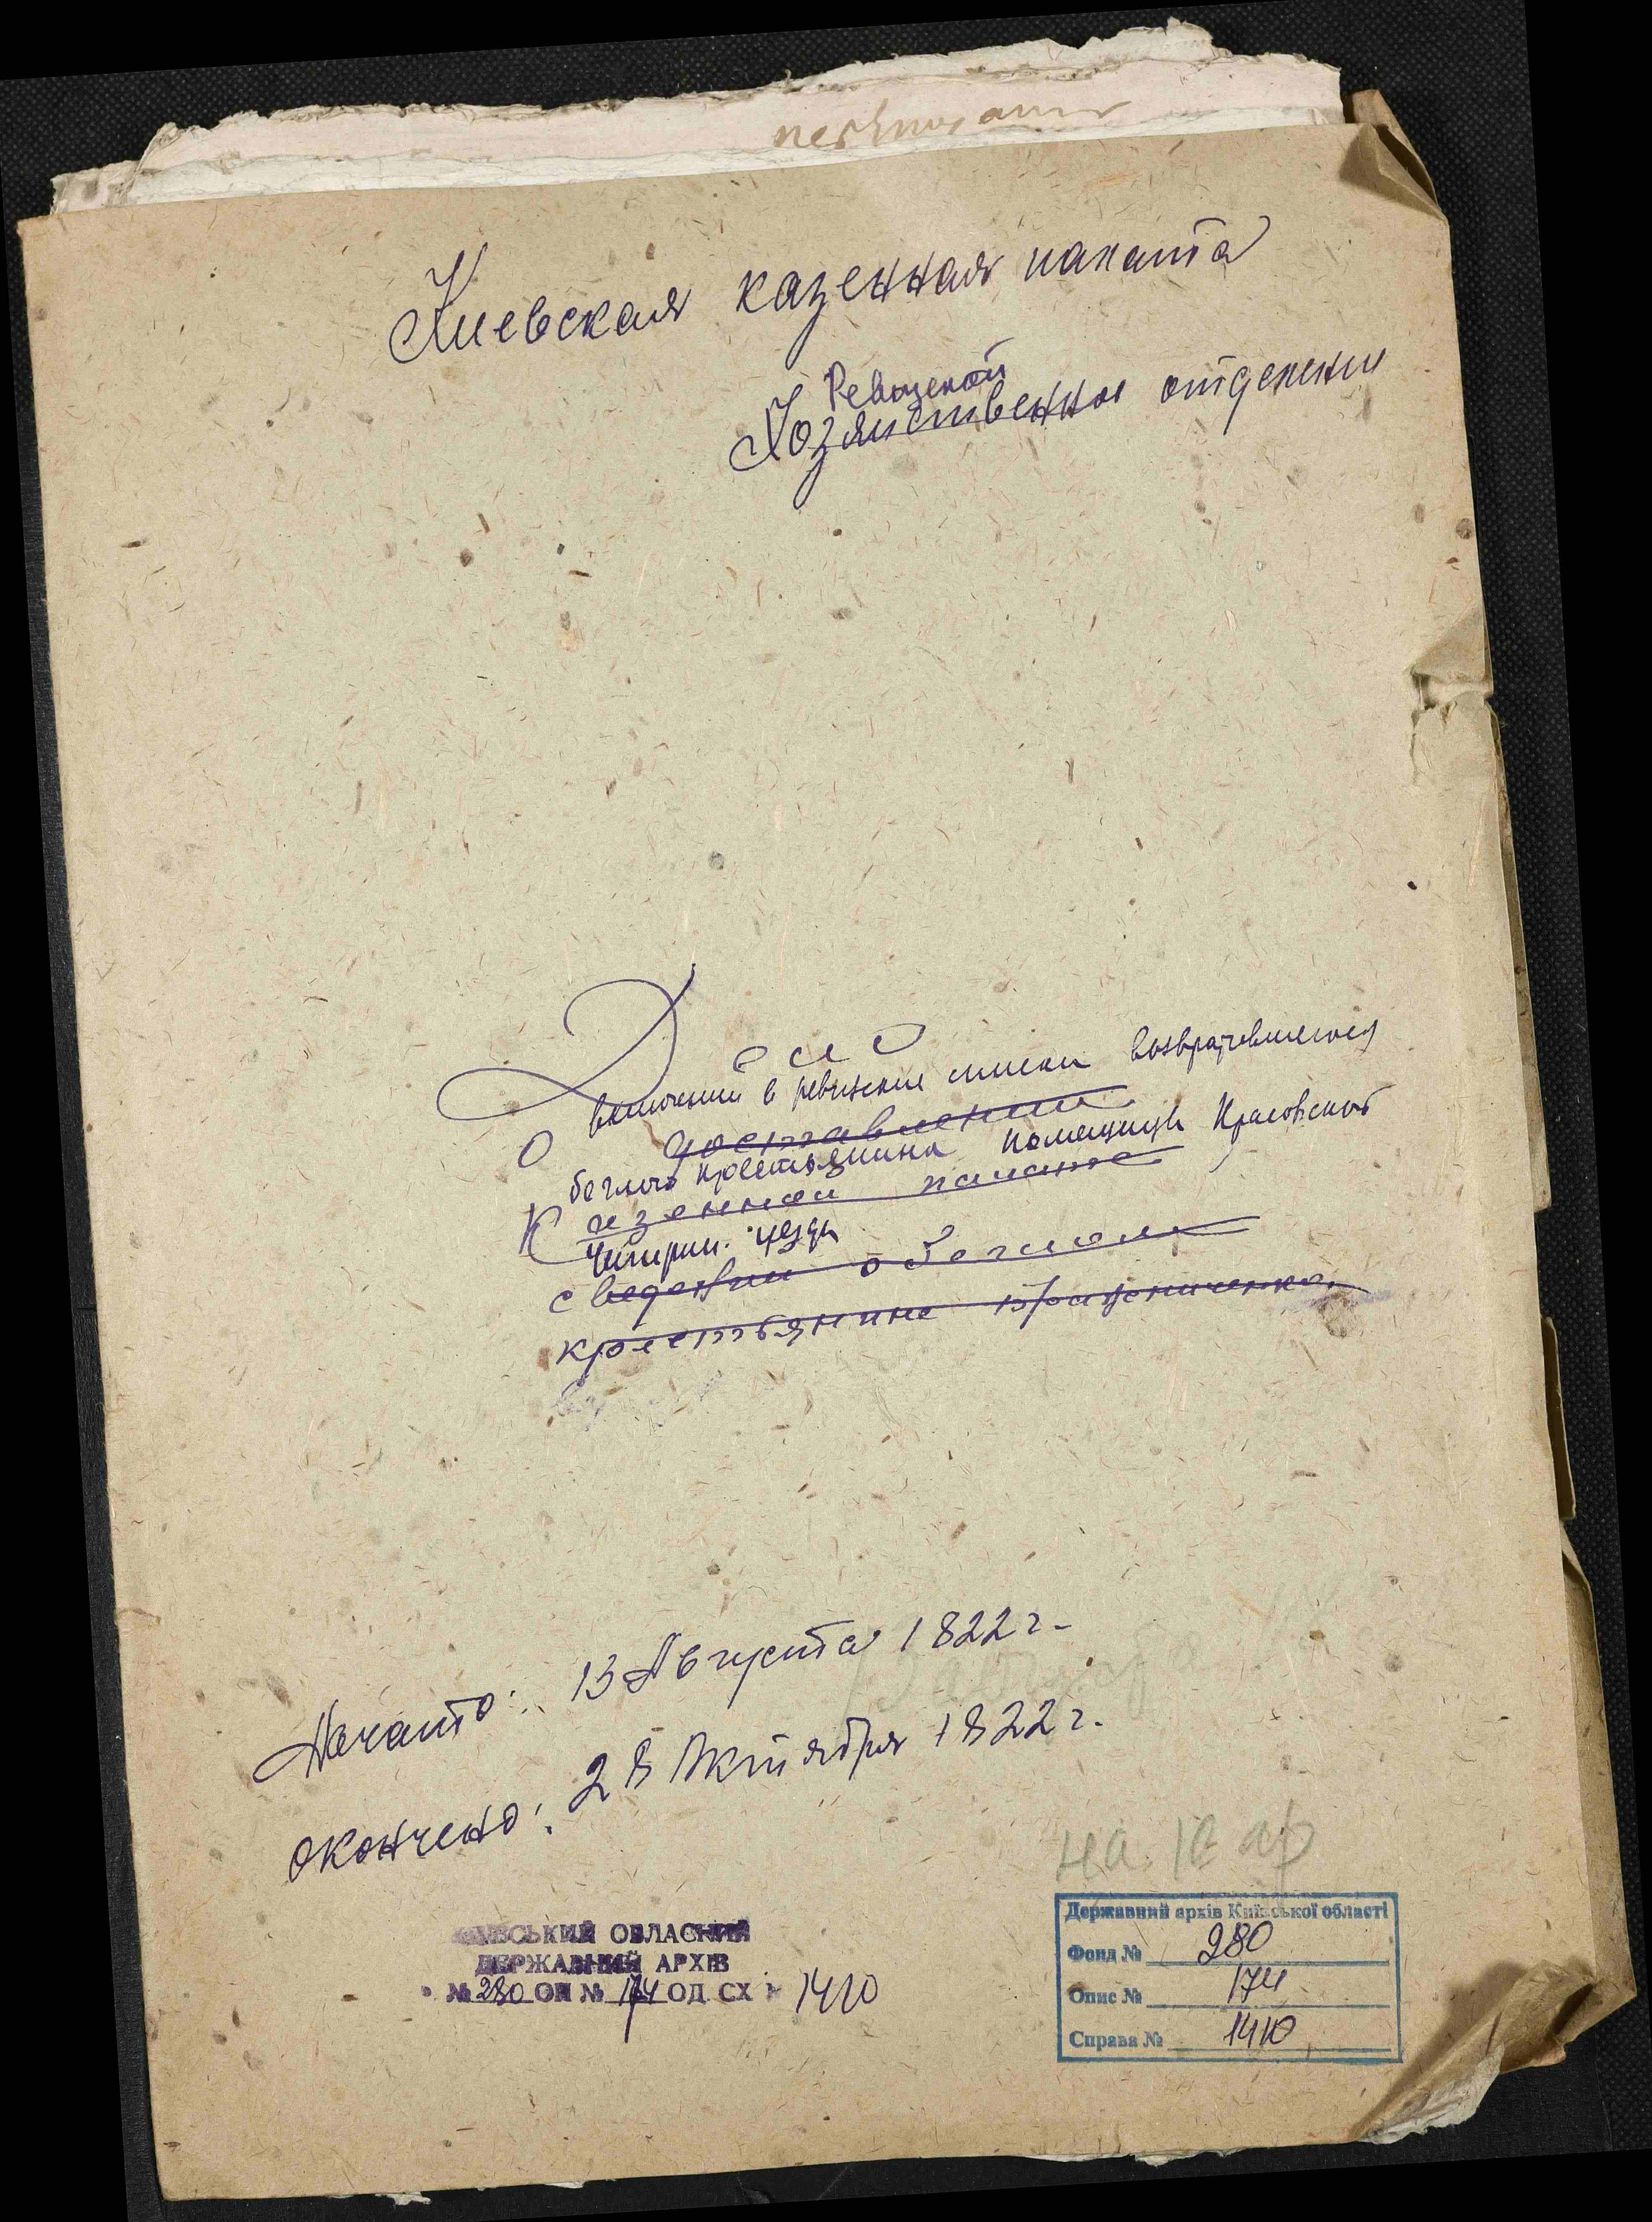 Киевская казенная палата
Ревизской
Хозяйственное отделение
Дело
О включении в ревизские списки возвратившегося
доставлении
беглого крестьянина помещицы Красовской
Казенной палате
Чигирин. уезда
сведений о беглом
крестьянине
Начато: 13 Августа 1822 г.
Окончено: 28 Октября 1822 г.
на
КИЇВСЬКИЙ ОБЛАСНИЙ
ДЕРЖАВНИЙ АРХІВ
№ 280 ОП № 174 ОД СХ 1410
Державний архів Київської області
Фонд № 280
Опис № 174
Справа № 1410